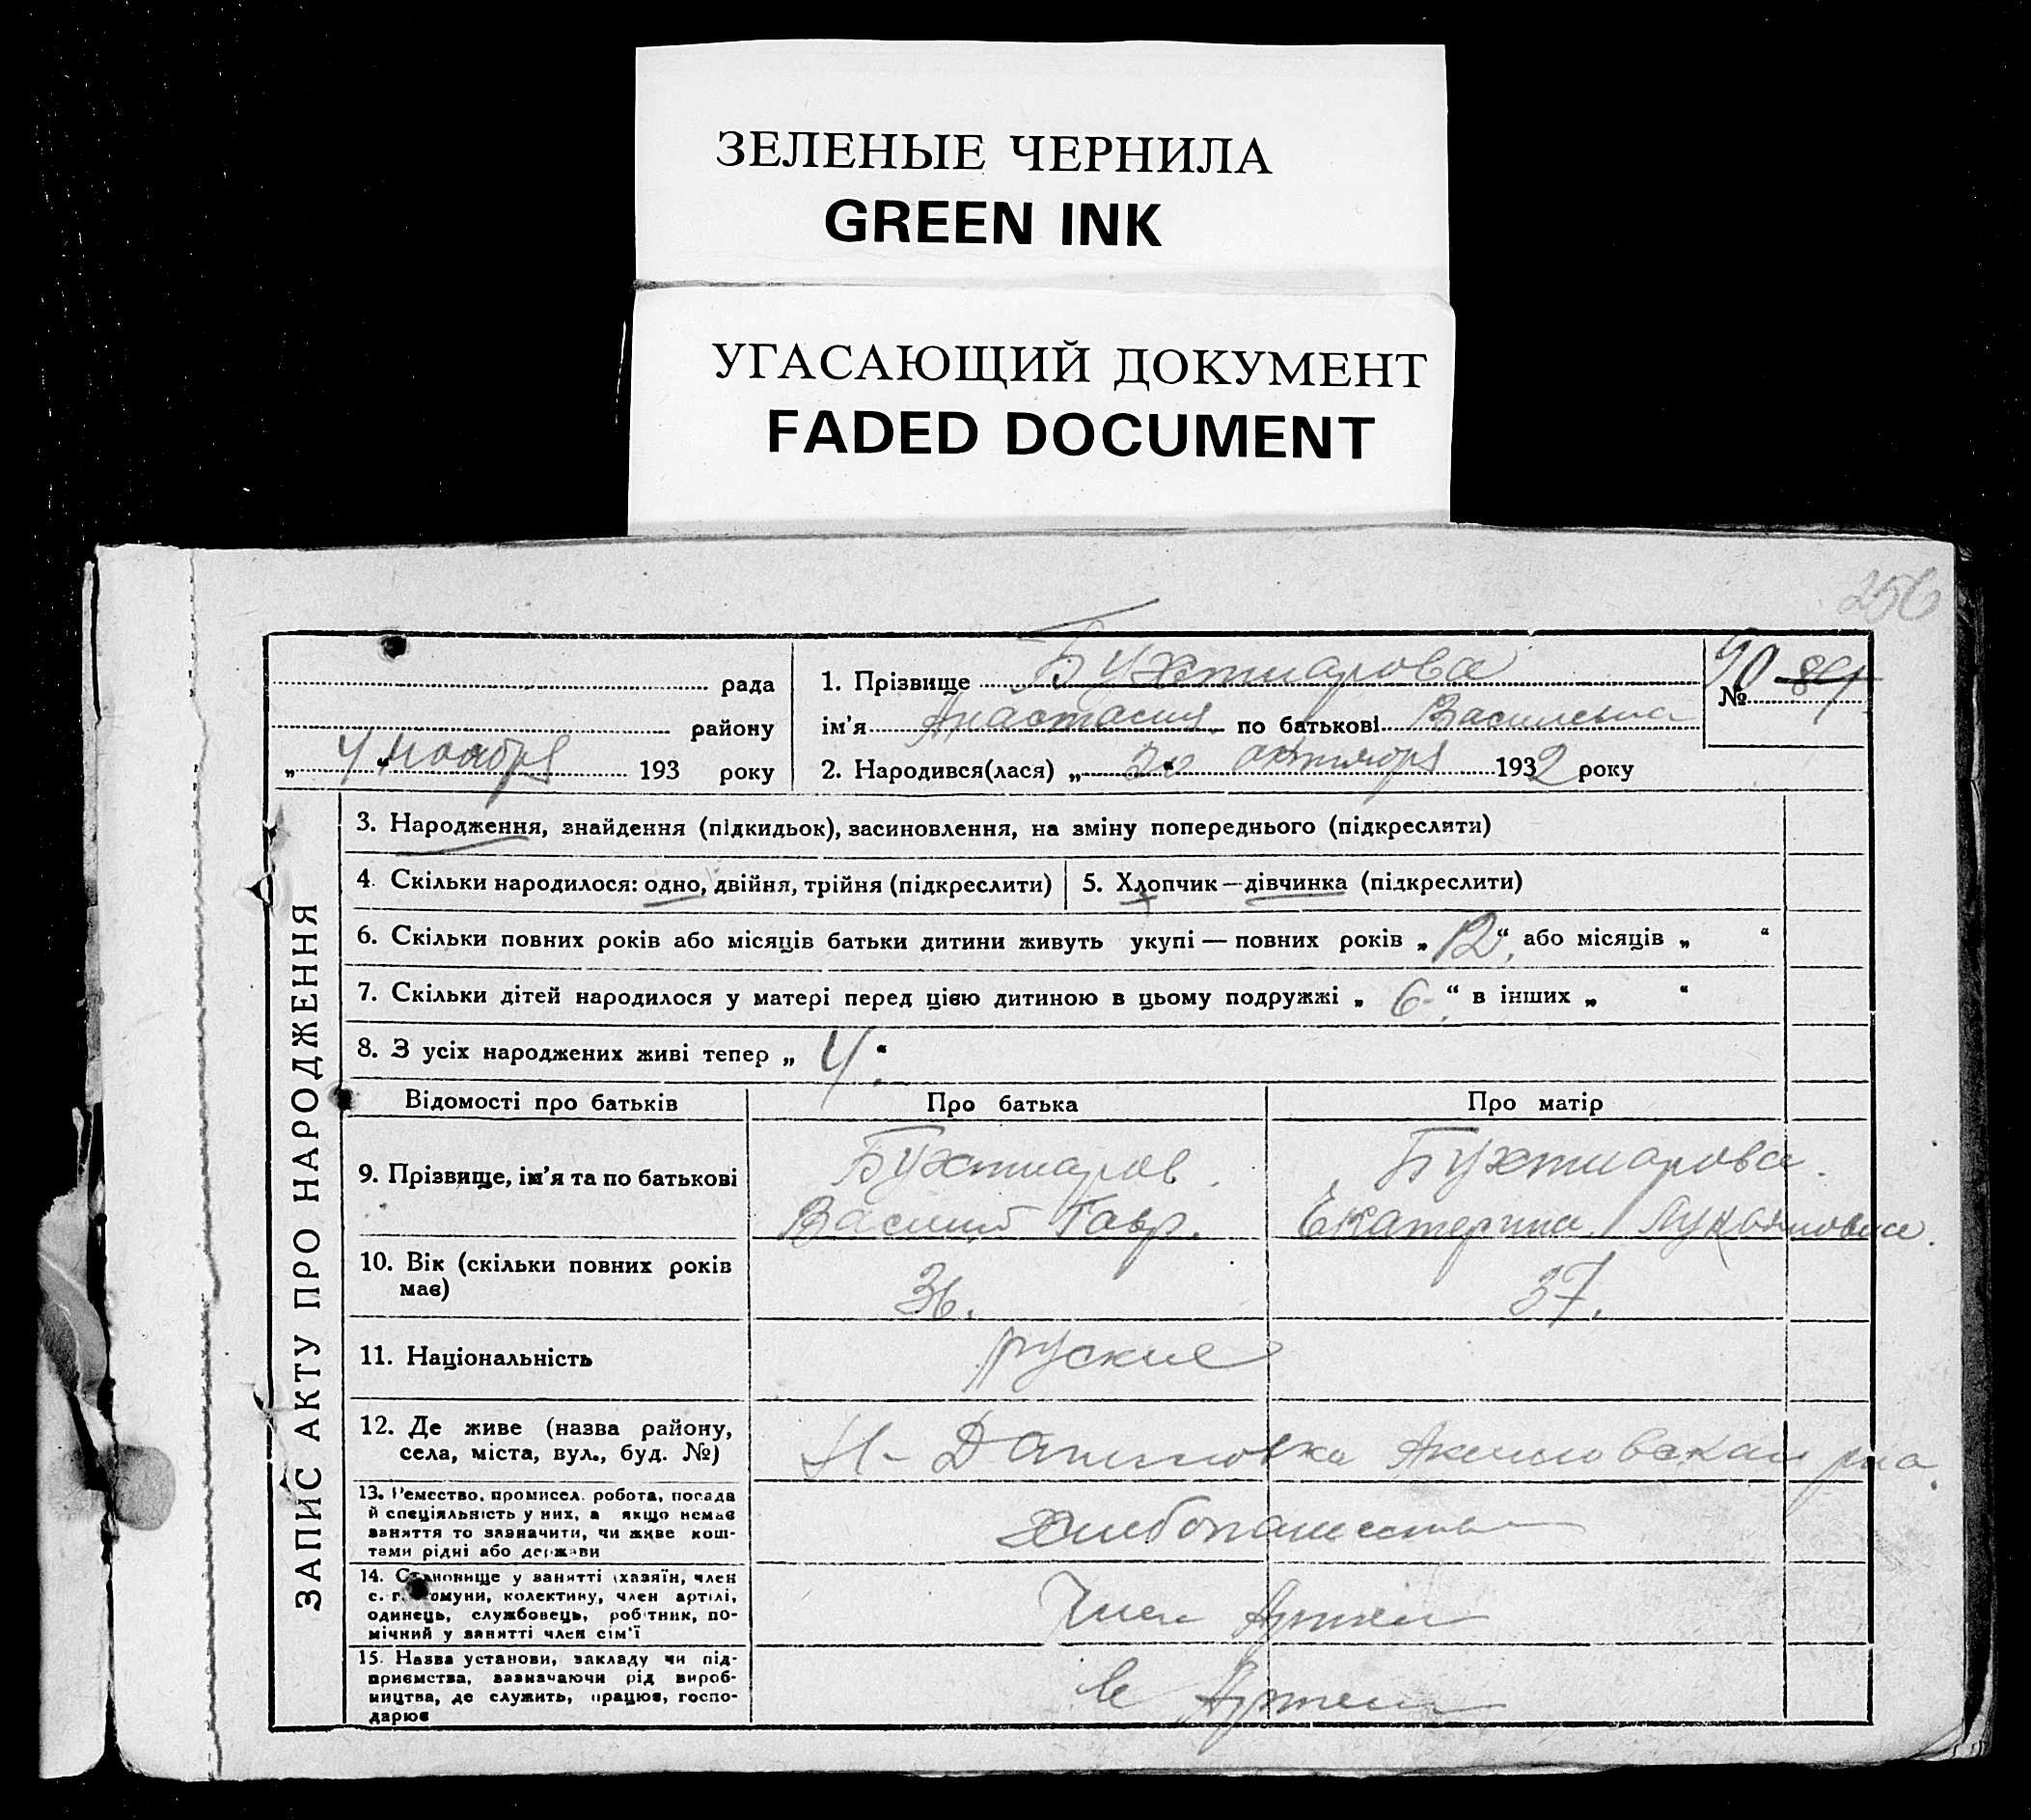 ЗЕЛЕНЫЕ ЧЕРНИЛА
GREEN INK
УГАСАЮЩИЙ ДОКУМЕНТ
FADED DOCUMENT
256
рада
району
„ 4 “ ноября 193 року
1. Прізвище Бухтиарова
ім’я Анастасия по батькові Васильевна
2. Народився(лася) „ 20 “ октября 1932 року
№ 90 89
ЗАПИС АКТУ ПРО НАРОДЖЕННЯ
3. Народження, знайдення (підкидьок), засиновлення, на зміну попереднього (підкреслити)
4. Скільки народилося: одно, двійня, трійня (підкреслити)
5. Хлопчик—дівчинка (підкреслити)
6. Скільки повних років або місяців батьки дитини живуть укупі — повних років „ 12 “, або місяців „ “
7. Скільки дітей народилося у матері перед цією дитиною в цьому подружжі „ 6 “ в інших „ “
8. З усіх народжених живі тепер „ 4 “
Відомості про батьків
Про батька
Про матір
9. Прізвище, ім’я та по батькові
Бухтиаров
Василий Гавр.
Бухтиарова
Екатерина Лукьяновна
10. Вік (скільки повних років
має)
36.
37.
11. Національність
руские
12. Де живе (назва району,
села, міста, вул., буд. №)
Н-Даниловка Акимовскаи рна
13. Ремество, промисел, робота, посада
й спеціяльність у них, а якщо немає
заняття то зазначити, чи живе кош-
тами рідні або держави
хлебопашество
14. Становище у занятті (хазяїн, член
с.-г. комуни, колективу, член артілі,
одинець, службовець, робітник, по-
мічний у занятті член сім’ї
Член Артели
15. Назва установи, закладу чи під-
приємства, зазначаючи рід вироб-
ництва, де служить, працює, госпо-
дарює
в Артели